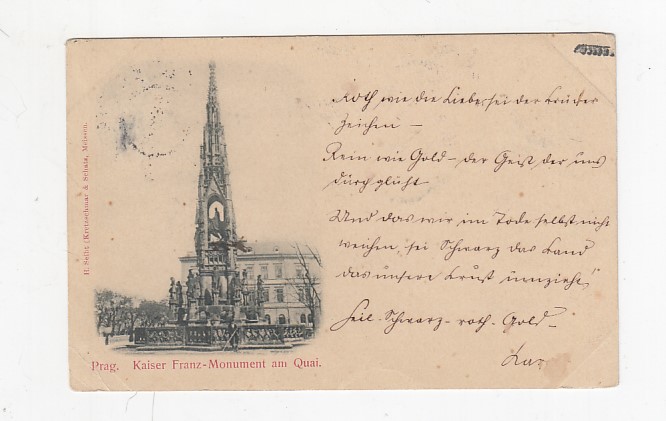 Roth wie die Liebe, sei der Brüder
Zeichen –
Rein wie Gold – der Geist der uns
durchglüht –
Und das wir im Tode selbst nicht
weichen, sei Schwarz das Band
das unsere Brust umzieht!
Heil – Schwarz – roth – Gold –
H. Seibt (Kretzschmar & Schatz, Meissen.
Prag. Kaiser Franz-Monument am Quai.